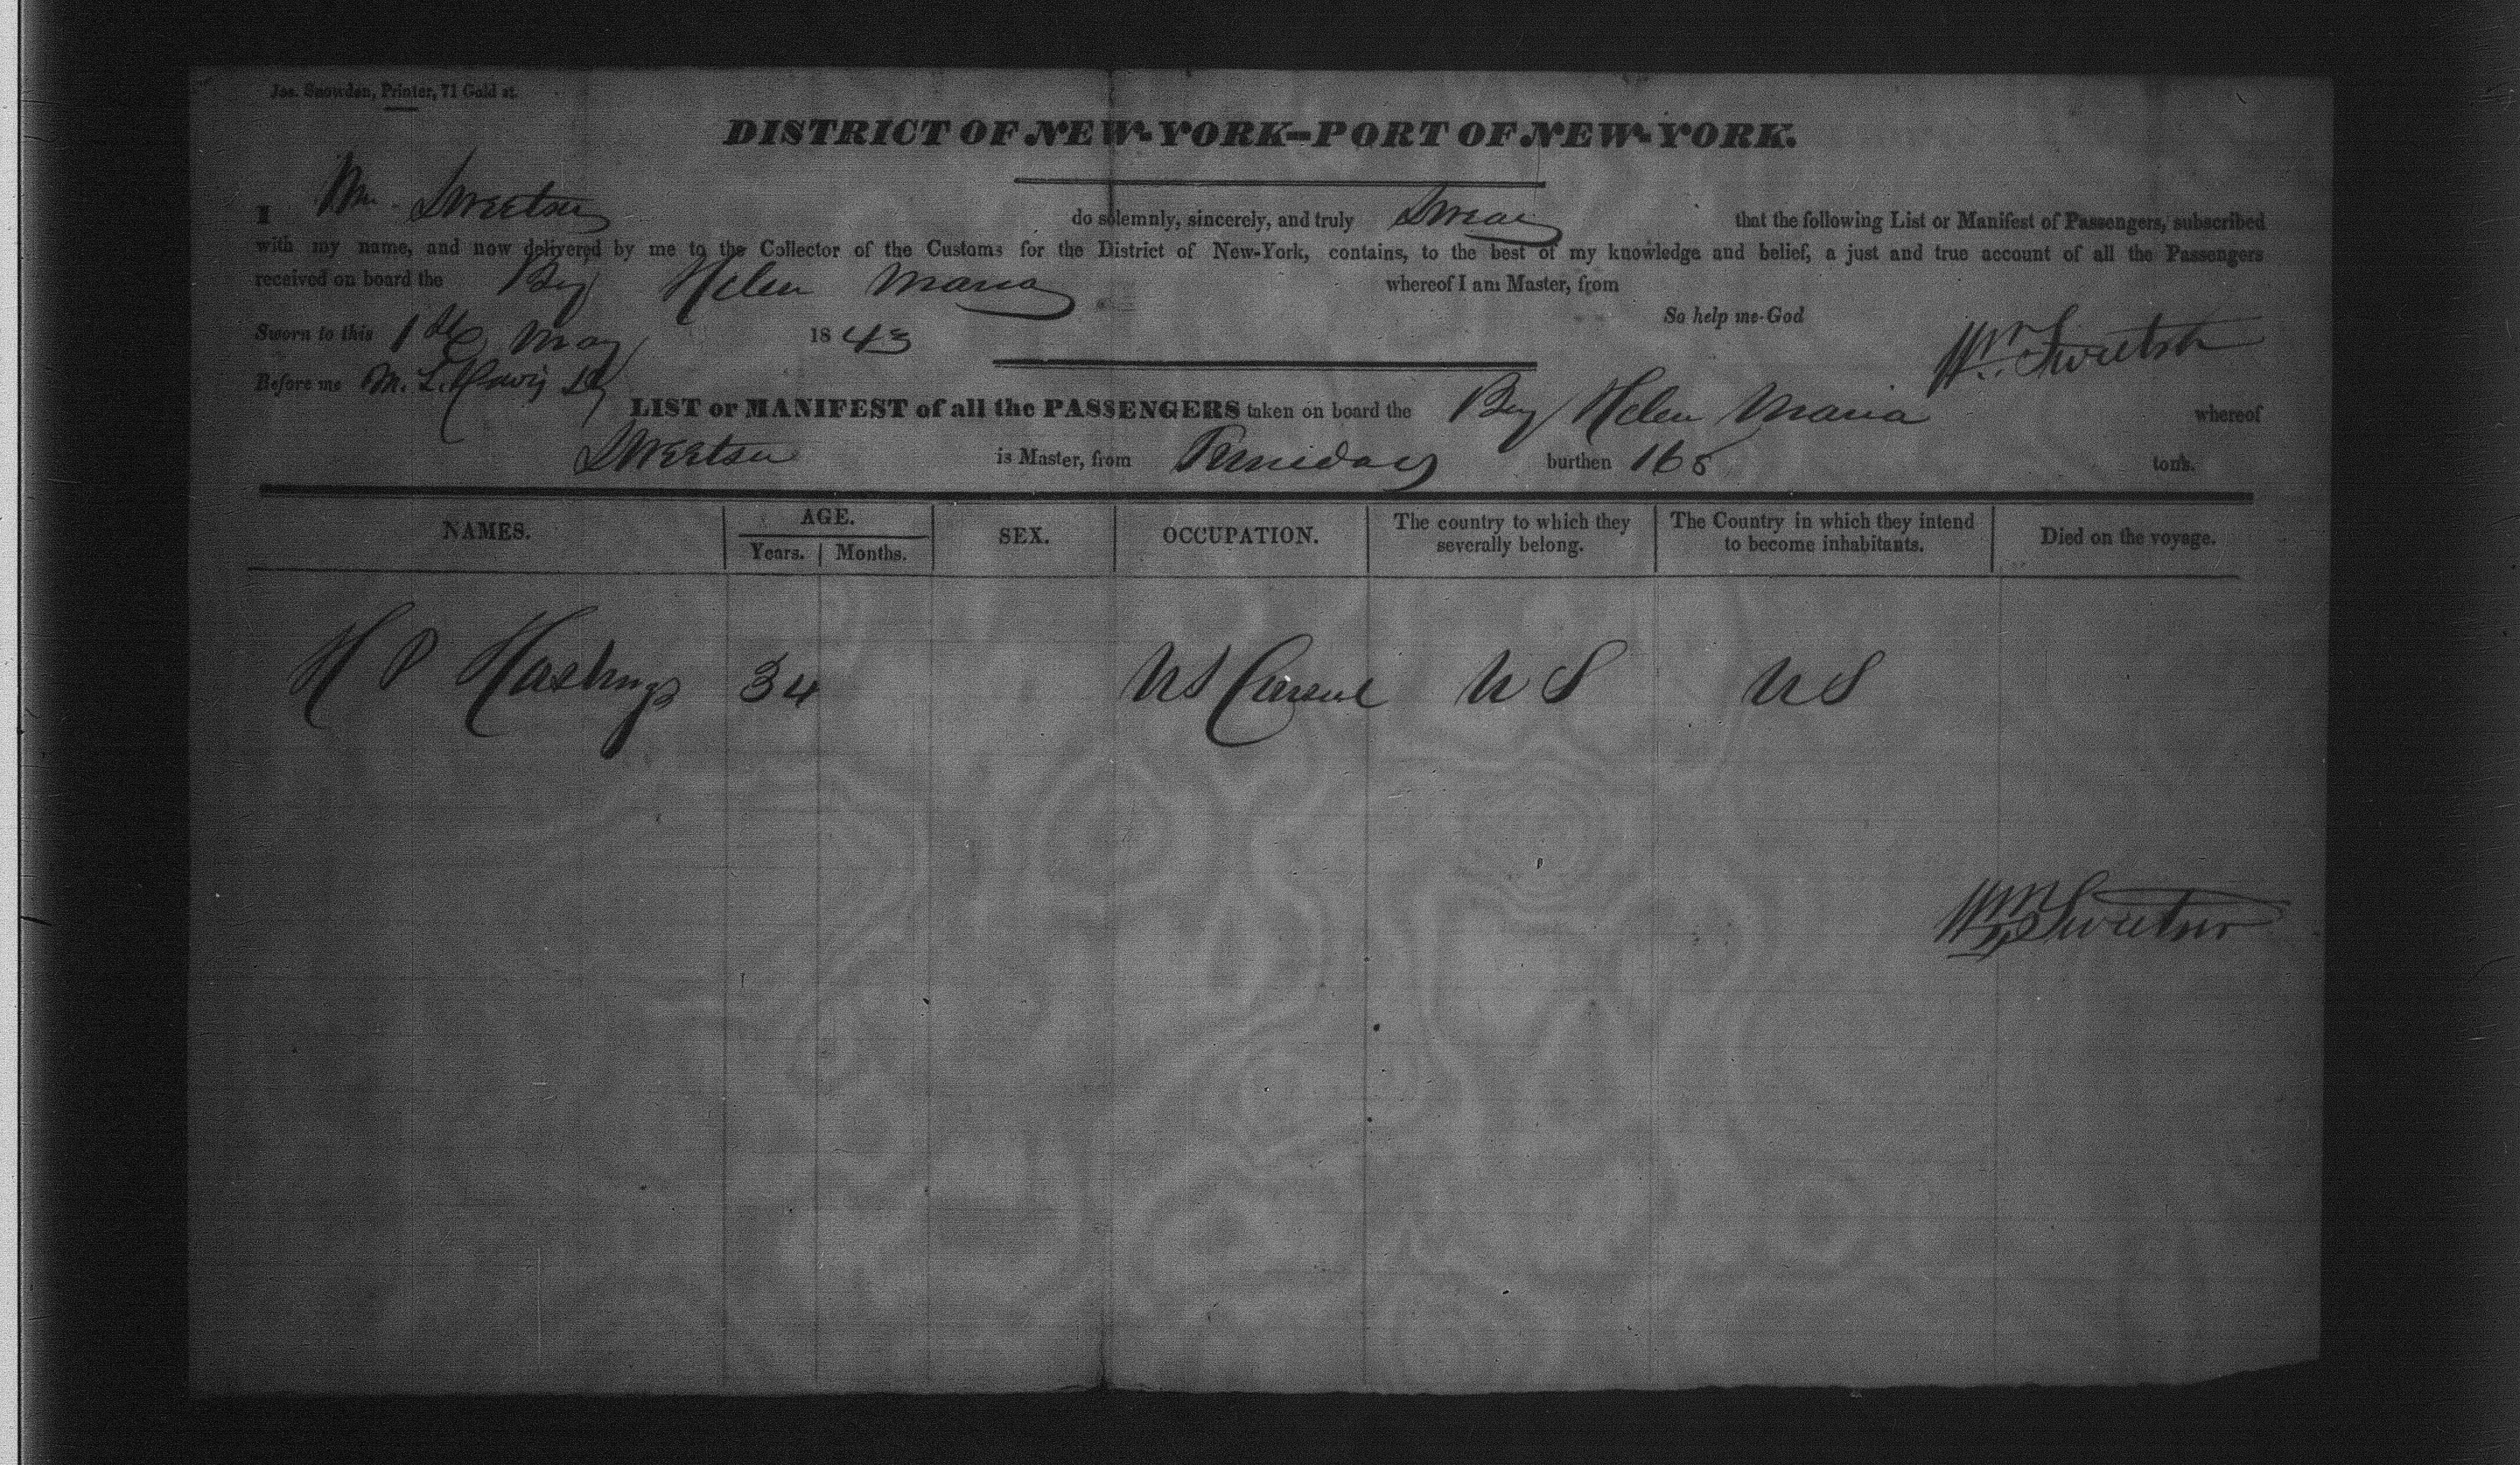 Jos. Snowden, Printer, 71 Gold st.
DISTRICT OF NEW-YORK—PORT OF NEW-YORK.
I Wm. Sweetser do solemnly, sincerely, and truly Swear that the following List or Manifest of Passengers, subscribed
with my name, and now delivered by me to the Collector of the Customs for the District of New-York, contains, to the best of my knowledge and belief, a just and true account of all the Passengers
received on board the Brig Helen Maria whereof I am Master, from
So help me God
Sworn to this 1st May 1843
Wm. Sweetser
Before me M. L. Davis
LIST or MANIFEST of all the PASSENGERS taken on board the Brig Helen Maria whereof
Sweetser is Master, from Trinidad burthen 168 tons.
NAMES. AGE. Years. Months. SEX. OCCUPATION. The country to which they severally belong. The Country in which they intend to become inhabitants. Died on the voyage.
H P Hastings 34 US Consul U S U S
Wm Sweetser